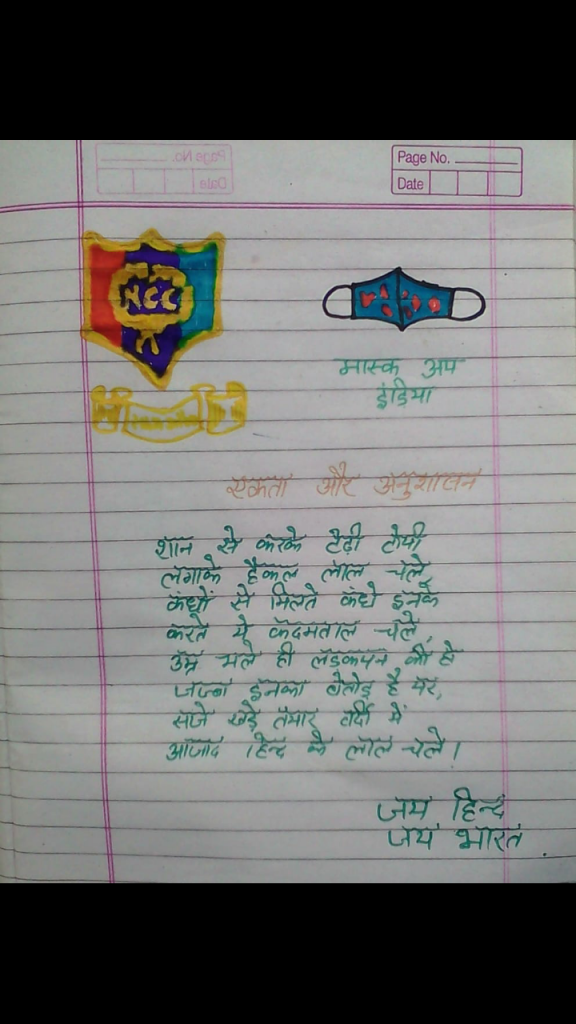 Page No.
Date
NCC
मास्क अप
इंडिया
एकता और अनुशासन
शान से करके टेढ़ी टोपी
लगाके हैकल लाल चले,
कंधों से मिलते कंधे इनके
करते ये कदमताल चले,
उम्र भले ही लड़कपन की हो
जज्बा इनका बेतोड़ है पर,
सजे खड़े तैयार वर्दी में
आजाद हिन्द के लाल चले।
जय हिन्द
जय भारत